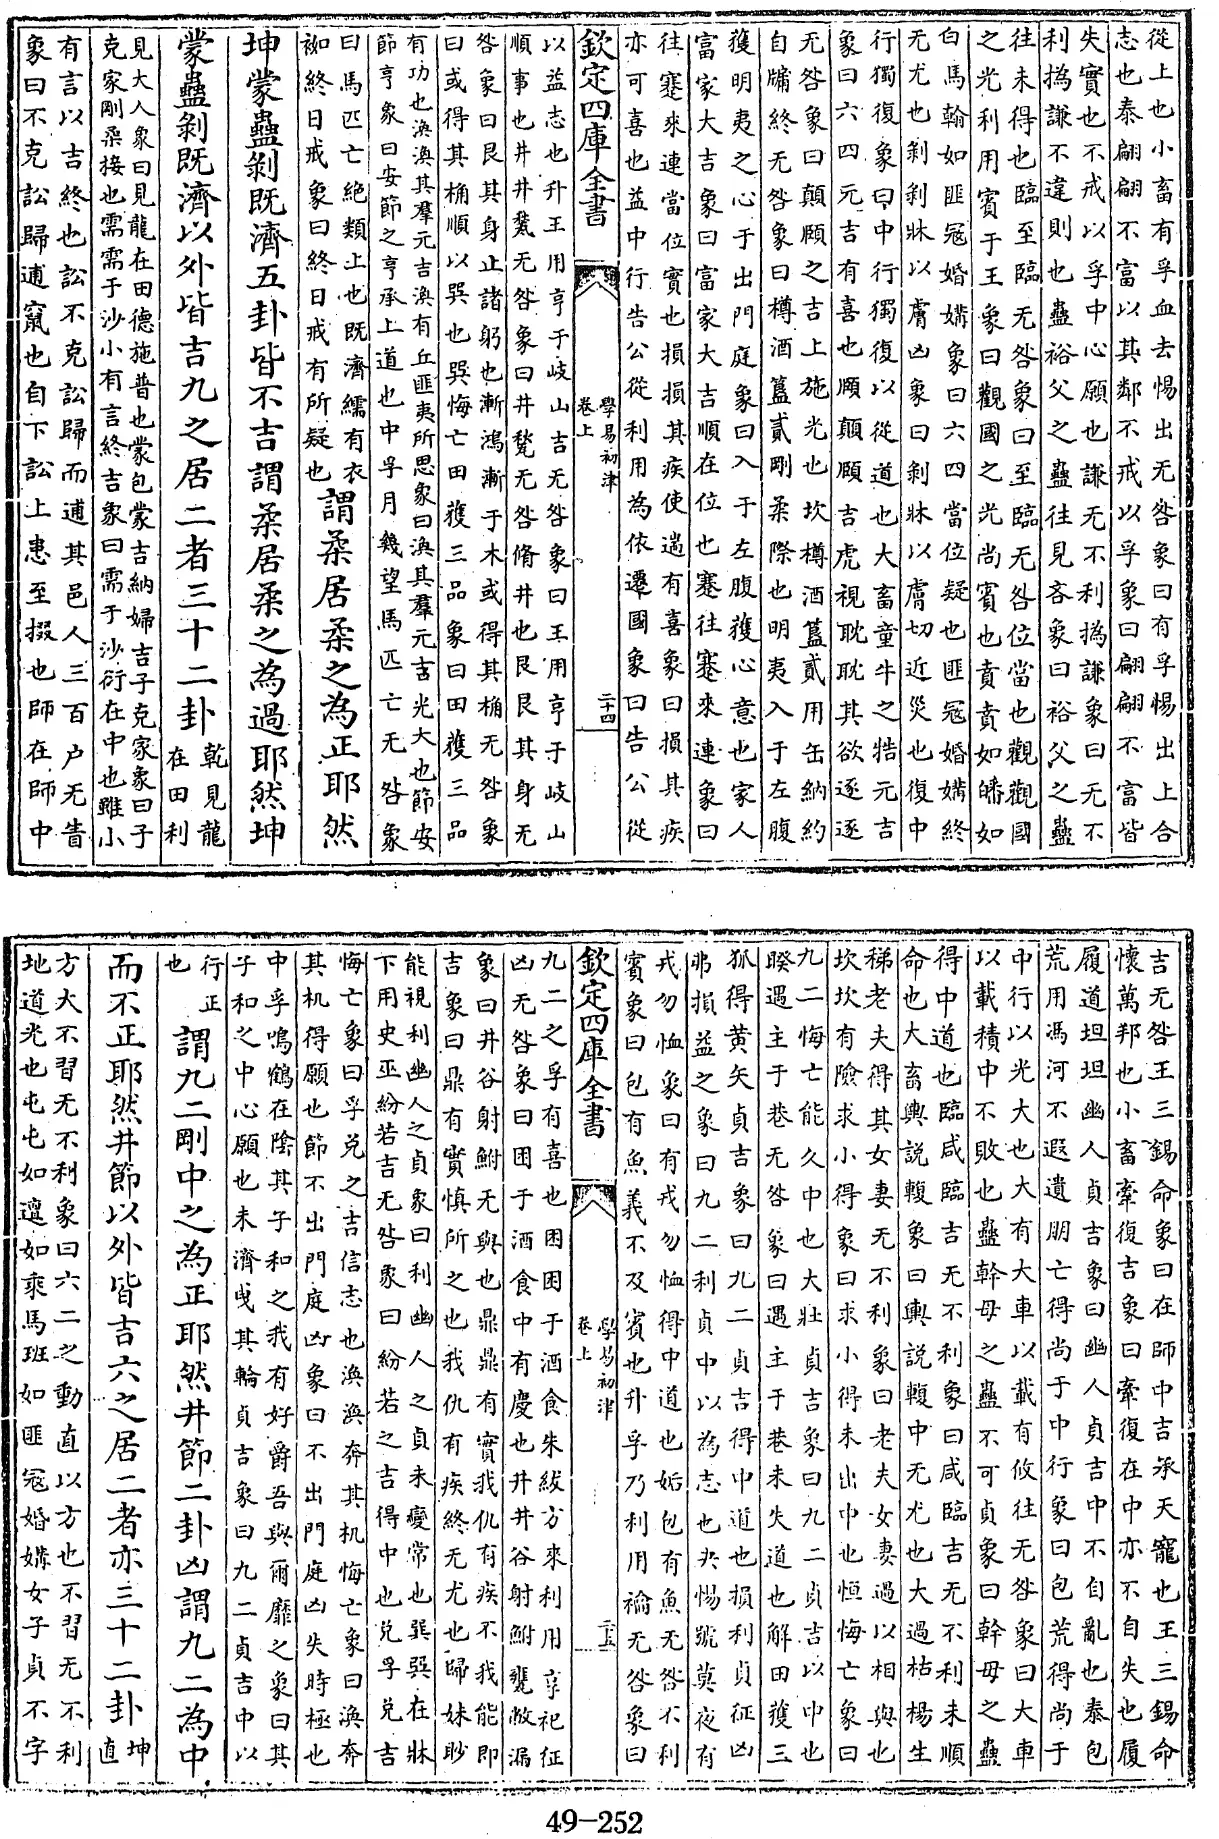 從上也小畜有孚血去惕出无咎象曰有孚惕出上合
志也泰翩翩不富以其鄰不戒以孚象曰翩翩不富皆
失實也不戒以孚中心願也謙无不利撝謙象曰无不
利撝謙不違則也蠱裕父之蠱往見吝象曰裕父之蠱
往未得也臨至臨无咎象曰至臨无咎位當也觀觀國
之光利用賓于王象曰觀國之光尚賓也賁賁如皤如
白馬翰如匪寇婚媾象曰六四當位疑也匪寇婚媾終
无尤也剝剝牀以膚凶象曰剝牀以膚切近災也復中
行獨復象曰中行獨復以從道也大畜童牛之牿元吉
象曰六四元吉有喜也頤顛頤吉虎視耽耽其欲逐逐
无咎象曰顛頤之吉上施光也坎樽酒簋貳用缶納約
自牖終无咎象曰樽酒簋貳剛柔際也明夷入于左腹
獲明夷之心于出門庭象曰入于左腹獲心意也家人
富家大吉象曰富家大吉順在位也蹇往蹇來連象曰
往蹇來連當位實也損損其疾使遄有喜象曰損其疾
亦可喜也益中行告公從利用為依遷國象曰告公從
欽定四庫全書
學易初津
卷上
二十四
以益志也升王用亨于岐山吉无咎象曰王用亨于岐山
順事也井井甃无咎象曰井甃无咎脩井也艮艮其身无
咎象曰艮其身止諸躬也漸鴻漸于木或得其桷无咎象
曰或得其桷順以巽也巽悔亡田獲三品象曰田獲三品
有功也渙渙其羣元吉渙有丘匪夷所思象曰渙其羣元吉光大也節安
節亨象曰安節之亨承上道也中孚月幾望馬匹亡无咎象
曰馬匹亡絕類上也既濟繻有衣
袽終日戒象曰終日戒有所疑也
謂柔居柔之為正耶然
坤蒙蠱剝既濟五卦皆不吉謂柔居柔之為過耶然坤
蒙蠱剝既濟以外皆吉九之居二者三十二卦
乾見龍
在田利
見大人象曰見龍在田德施普也蒙包蒙吉納婦吉子克家象曰子
克家剛柔接也需需于沙小有言終吉象曰需于沙衍在中也雖小
有言以吉終也訟不克訟歸而逋其邑人三百户无眚
象曰不克訟歸逋竄也自下訟上患至掇也師在師中
吉无咎王三錫命象曰在師中吉承天寵也王三錫命
懷萬邦也小畜牽復吉象曰牽復在中亦不自失也履
履道坦坦幽人貞吉象曰幽人貞吉中不自亂也泰包
荒用馮河不遐遺朋亡得尚于中行象曰包荒得尚于
中行以光大也大有大車以載有攸往无咎象曰大車
以載積中不敗也蠱幹母之蠱不可貞象曰幹母之蠱
得中道也臨咸臨吉无不利象曰咸臨吉无不利未順
命也大畜輿説輹象曰輿説輹中无尤也大過枯楊生
稊老夫得其女妻无不利象曰老夫女妻過以相與也
坎坎有險求小得象曰求小得未出中也恒悔亡象曰
九二悔亡能久中也大壯貞吉象曰九二貞吉以中也
睽遇主于巷无咎象曰遇主于巷未失道也解田獲三
狐得黃矢貞吉象曰九二貞吉得中道也損利貞征凶
弗損益之象曰九二利貞中以為志也夬惕號莫夜有
戎勿恤象曰有戎勿恤得中道也姤包有魚无咎不利
賓象曰包有魚義不及賓也升孚乃利用禴无咎象曰
欽定四庫全書
學易初津
卷上
二十五
九二之孚有喜也困困于酒食朱紱方來利用享祀征
凶无咎象曰困于酒食中有慶也井井谷射鮒甕敝漏
象曰井谷射鮒无與也鼎鼎有實我仇有疾不我能即
吉象曰鼎有實慎所之也我仇有疾終无尤也歸妹眇
能視利幽人之貞象曰利幽人之貞未變常也巽巽在牀
下用史巫紛若吉无咎象曰紛若之吉得中也兌孚兌吉
悔亡象曰孚兌之吉信志也渙渙奔其机悔亡象曰渙奔
其机得願也節不出門庭凶象曰不出門庭凶失時極也
中孚鳴鶴在陰其子和之我有好爵吾與爾靡之象曰其
子和之中心願也未濟曳其輪貞吉象曰九二貞吉中以
行正
也
謂九二剛中之為正耶然井節二卦凶謂九二為中
而不正耶然井節以外皆吉六之居二者亦三十二卦
坤
直
方大不習无不利象曰六二之動直以方也不習无不利
地道光也屯屯如邅如乘馬班如匪寇婚媾女子貞不字
49-252